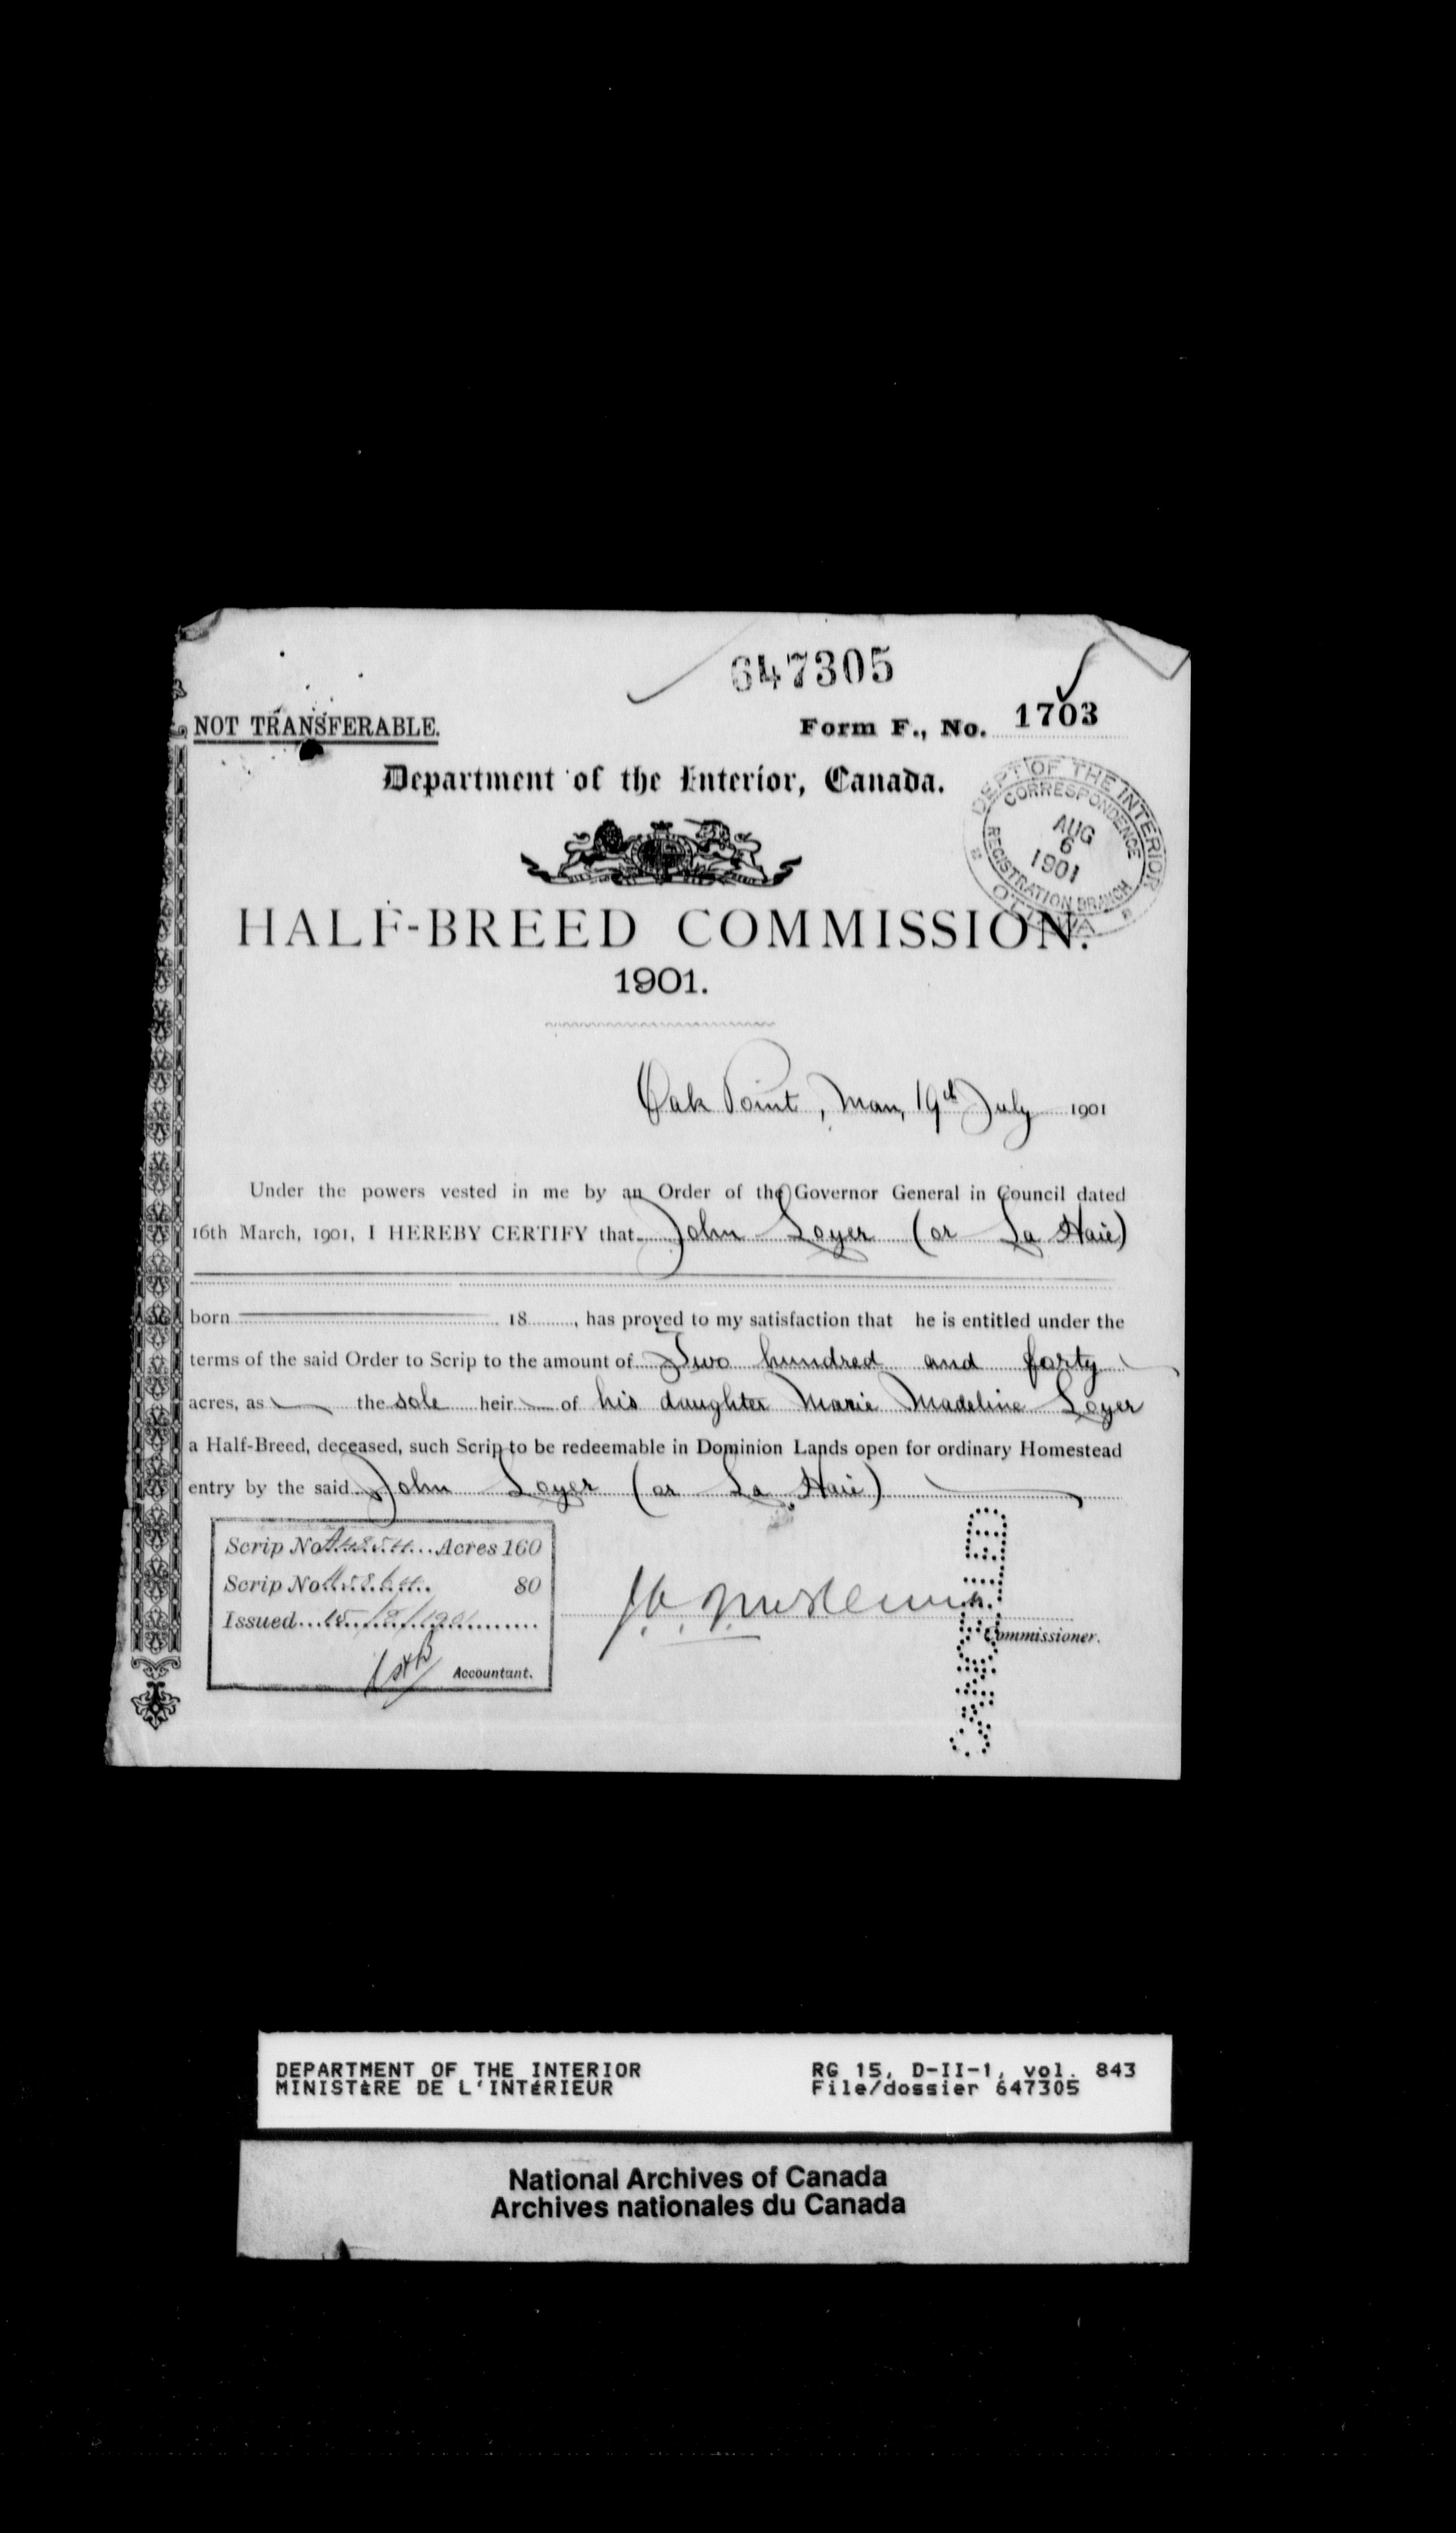 647305
NOT TRANSFERABLE.
Form F., No. 1703
Department of the Interior, Canada.
DEPT OF THE INTERIOR
CORRESPONDENCE
AUG
6
1901
REGISTRATION BRANCH
OTTAWA
HALF-BREED COMMISSION.
1901.
Oak Point, Man, 19th July 1901
Under the powers vested in me by an Order of the Governor General in Council dated
16th March, 1901, I HEREBY CERTIFY that John Loyer (or La Haie)
born 18 , has proved to my satisfaction that he is entitled under the
terms of the said Order to Scrip to the amount of Two hundred and forty
acres, as the sole heir of his daughter Marie Madeline Loyer
a Half-Breed, deceased, such Scrip to be redeemable in Dominion Lands open for ordinary Homestead
entry by the said John Loyer (or La Haie)
Scrip No. Acres 160
Scrip No. 80
Issued 15/8/1901
Accountant.
Commissioner.
CANCELLED
DEPARTMENT OF THE INTERIOR
MINISTèRE DE L'INTéRIEUR
RG 15, D-II-1, vol. 843
File/dossier 647305
National Archives of Canada
Archives nationales du Canada